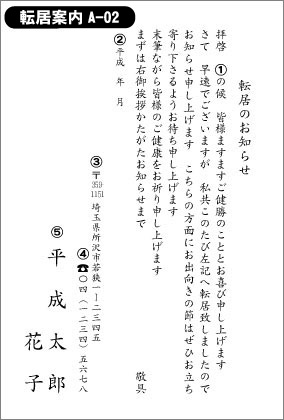 転居案内 A-02
転居のお知らせ
拝啓　①の候　皆様ますますご健勝のこととお喜び申し上げます
さて　早速でございますが　私共このたび左記へ転居致しましたので
お知らせ申し上げます　こちらの方面にお出向きの節はぜひお立ち
寄り下さるようお待ち申し上げます
末筆ながら皆様のご健康をお祈り申し上げます
まずは右御挨拶かたがたお知らせまで
敬具
②平成　年　月
③〒359-1151　埼玉県所沢市若狭一ー二三四五
④☎〇四（一二三四）五六七八
⑤平成太郎
花子